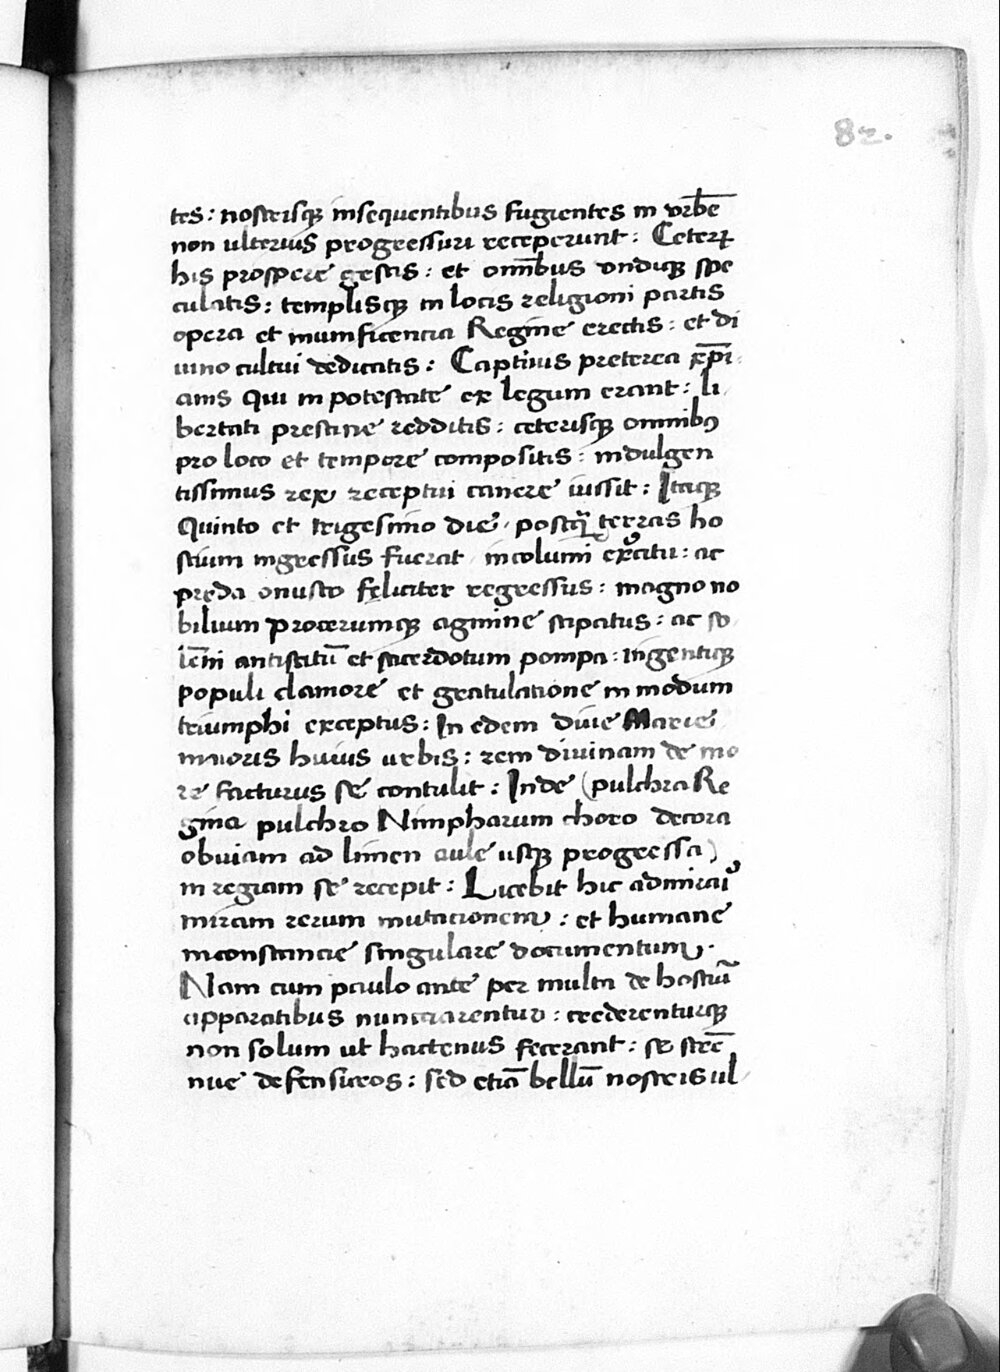 82.
tes: nosterisq̨ insequentibus fugientes in vrbē
non ulterius progressuri receperunt: Ceterꝝ
his prospere gestis: et om̄ibus vndiq̨ spe
culatis: templisq̨ in locis religioni partis
opera et munificentia Regine erectis: et di
uino cultui dedicatis: Captiuis preterea xp̄i
anis Qui in potestate ex legum erant: li
bertati prestine redditis: ceterisq̨ omnibꝰ
pro loco et tempore compositis: indulgen
tissimus rex receptui canere iussit: Itaq̨
Quinto et trigesimo die, postq̄ terras ho
stium ingressus fuerat incolumi exꝰcitu: ac
preda onusto feliciter regressus: magno no
bilium procerumq̨ agmine stipatus: ac so
lēni antistitū et sacerdotum pompa: ingentiq̨
populi clamore et gratulatione in modum
triumphi exceptus: In edem diue Marie
maioris huius urbis: rem diuinam de mo
re facturus se contulit: Inde (pulchra Re
gina pulchro Nimpharum choro decora
obuiam ad limen aule usq̨ progressa)
in regiam se recepit: Licebit hic admiraiꝰ
miram rerum mutacionem: et humane
inconstancie singulare documentum.
Nam cum paulo ante per multa de hostiū
apparatibus nunciarentur: crederenturq̨
non solum ut hactenus fecerant: se strē
nue defensuros: sed etiā bellū nosteris ul